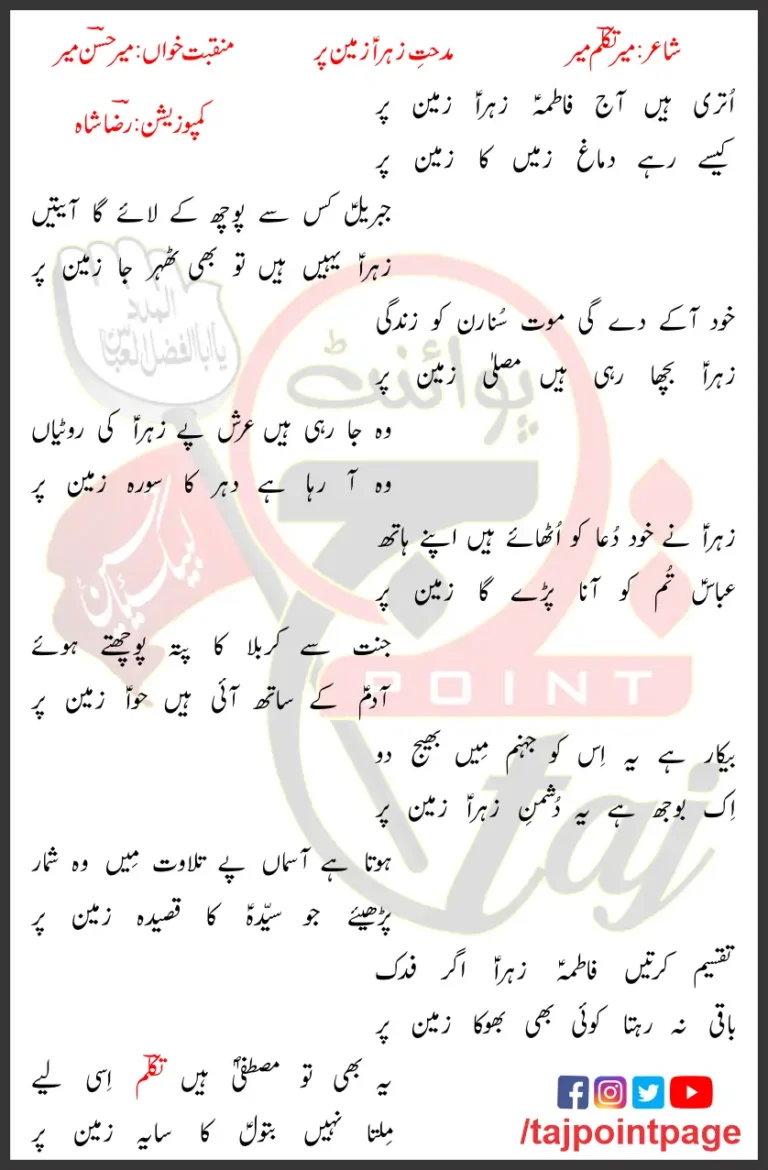 شاعر: میر تکلّم میر
مدحتِ زہراؑ زمین پر
منقبت خواں: میر حسن میر
کمپوزیشن: رضا شاہ
اُتری ہیں آج فاطمہؑ زہراؑ زمین پر
کیسے رہے دماغ زمیں کا زمین پر
جبریلؑ کس سے پوچھ کے لائے گا آیتیں
زہراؑ یہیں ہیں تو بھی ٹھہر جا زمین پر
خود آکے دے گی موت سُنارن کو زندگی
زہراؑ بچھا رہی ہیں مصلیٰ زمین پر
وہ جا رہی ہیں عرش پے زہراؑ کی روٹیاں
وہ آ رہا ہے دہر کا سورہ زمین پر
زہراؑ نے خود دُعا کو اُٹھائے ہیں اپنے ہاتھ
عباسؑ تُم کو آنا پڑے گا زمین پر
جنت سے کربلا کا پتہ پوچھتے ہوئے
آدمؑ کے ساتھ آئی ہیں حواؑ زمین پر
بیکار ہے یہ اِس کو جہنم مِیں بھیج دو
اِک بوجھ ہے یہ دُشمنِ زہراؑ زمین پر
ہوتا ہے آسماں پے تلاوت مِیں وہ شمار
پڑھیئے جو سیّدہؑ کا قصیدہ زمین پر
تقسیم کرتیں فاطمہؑ زہراؑ اگر فدک
باقی نہ رہتا کوئی بھی بھوکا زمین پر
یہ بھی تو مصطفیٰؐ ہیں تکلّم اِسی لیے
مِلتا نہیں بتولؑ کا سایہ زمین پر
/tajpointpage
المدد
یا ابا الفضل العباس
لبیک یا حسین
پوائنٹ
تاج
POINT
taj